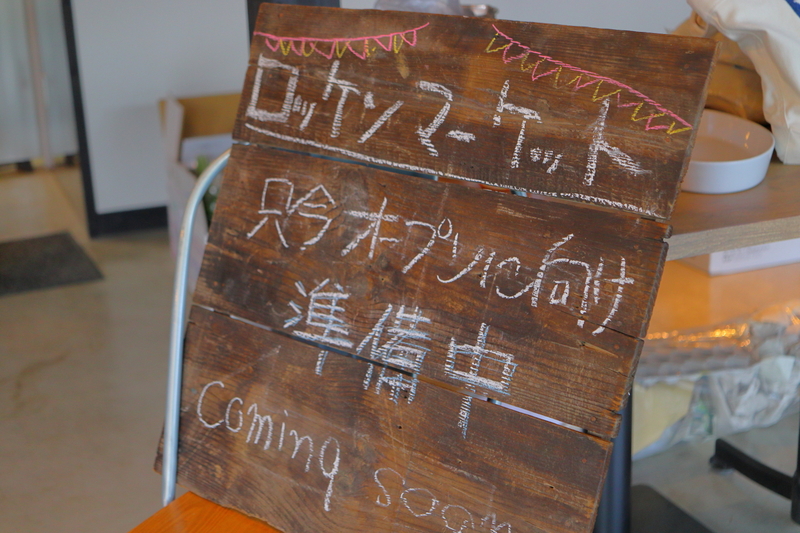 ロッケンマーケット
只今オープンに向け
準備中
coming soon